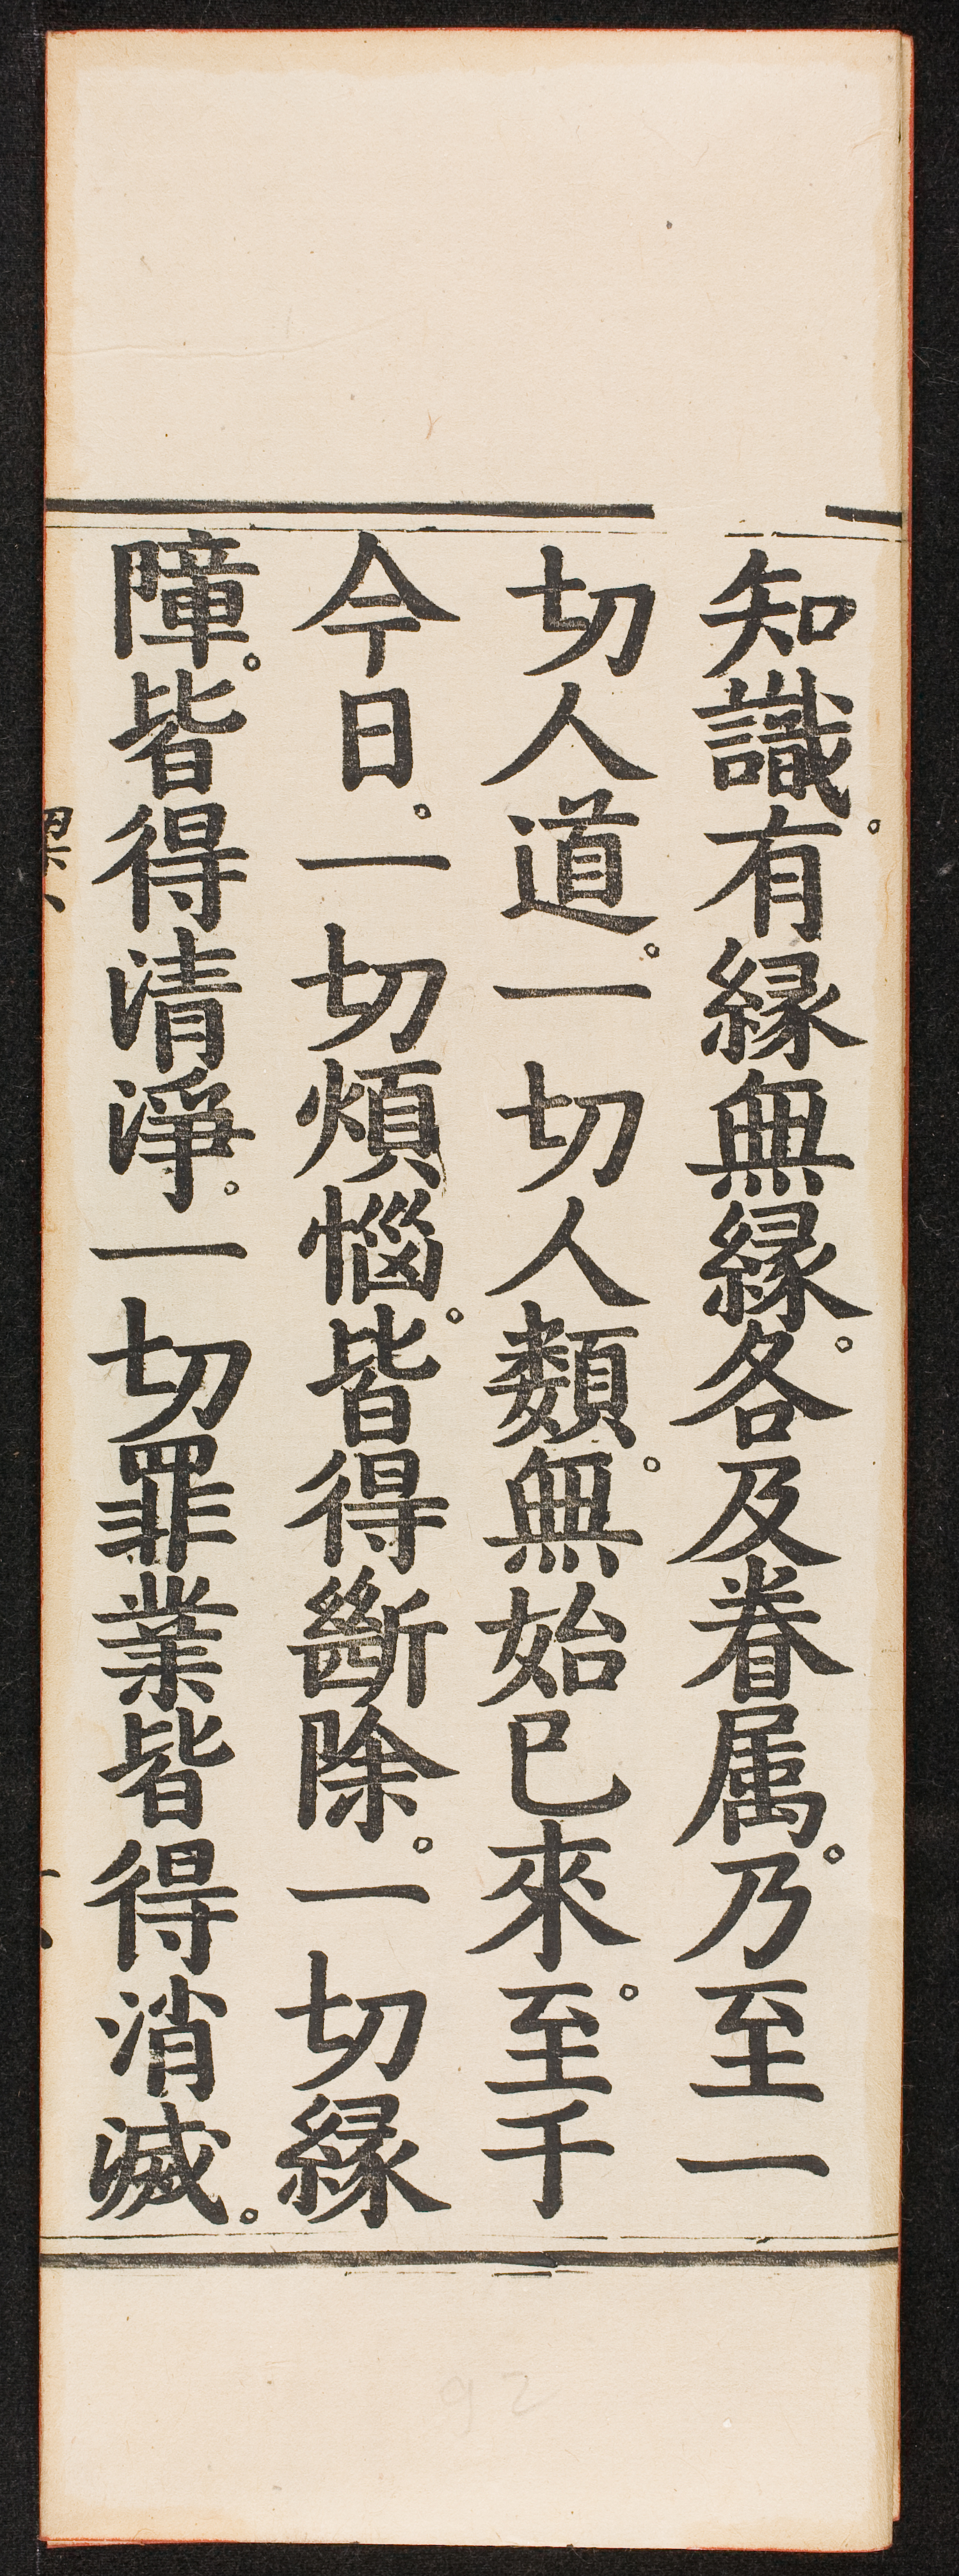 知識。有縁無縁。各及眷属。乃至一
切人道。一切人類。無始已來。至千
今日。一切煩惱。皆得斷除。一切縁
障。皆得清淨。一切罪業皆得消滅。
92